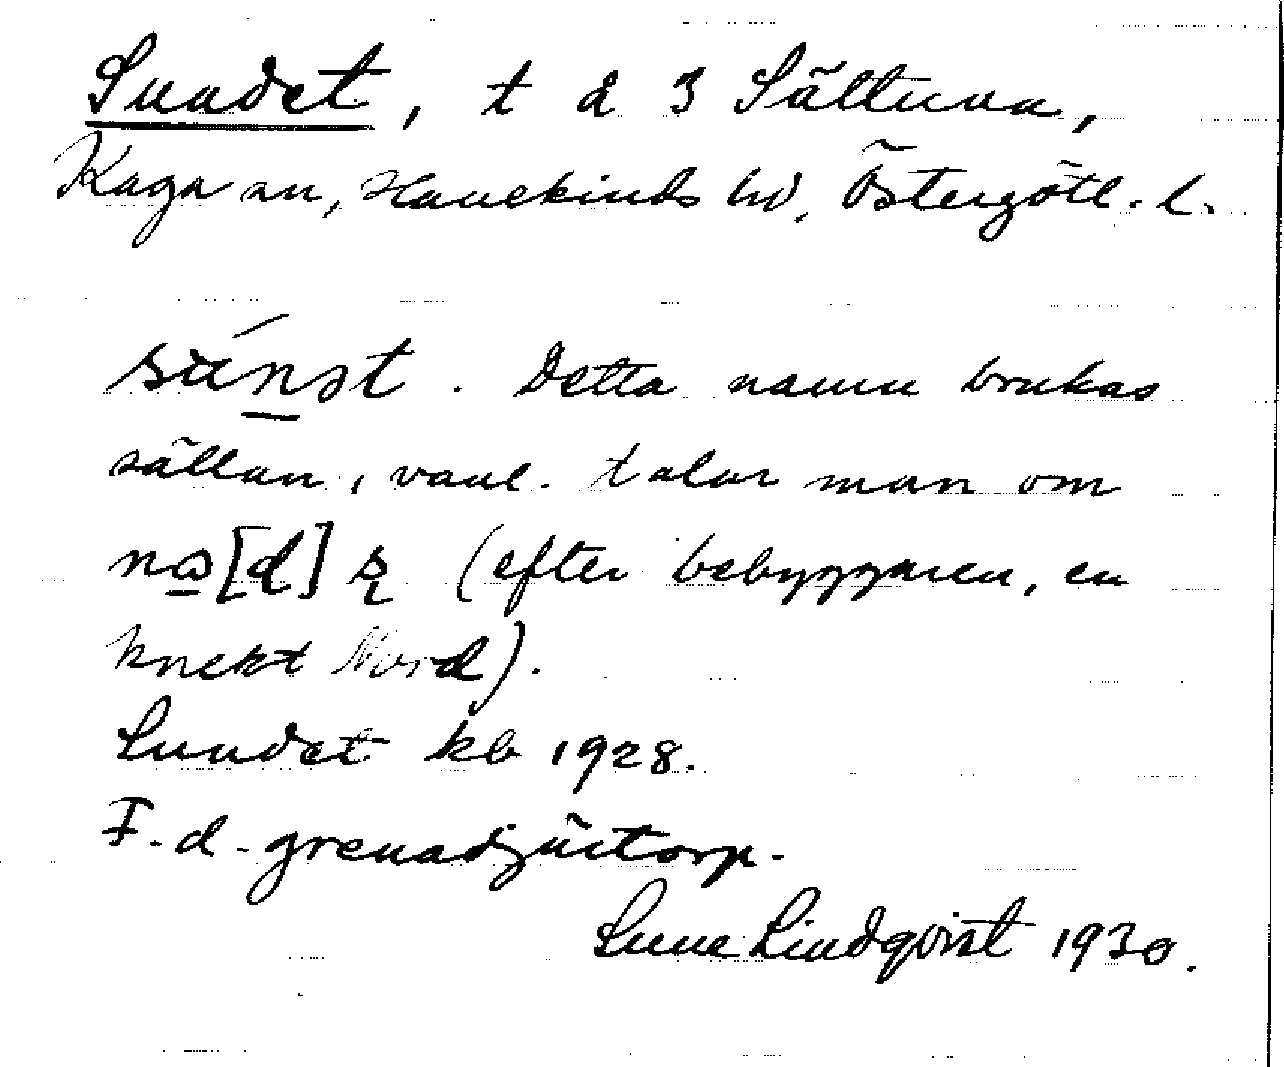 Sundet, t å 3 Sättuna,
Kaga sn, Hanekinds hd, Östergötl. l.
Detta namn brukas
sällan, vanl. talar man om
(efter bebyggaren, en
knekt Nord).
Sundet kb 1928.
F.d. grenadjärtorp.
Sune Lindqvist 1930.